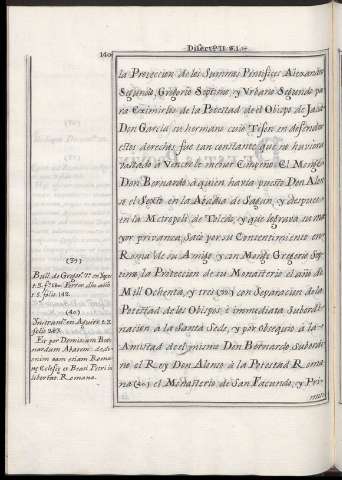 140
la Proteccion de los Summos Pontifices Alexandro
Segundo, Gregorio Septimo, y Urbano Segundo pa
ra Eximirlos de la Potestad de el Obispo de Jaca
Don Garcia su hermano
estos derechos fue tan constante que no huviera
bastado à Vencerle menor Empeño. El Monge
Don Bernardo à quien havia puesto Don Alon
so el Sexto en la Abadia de Sagun, y despues
en la Metropoli de Toledo, y que lograva su ma
yor privanza Saco por su Consentimiento en
Roma de su Amigo, y con Monge Gregorio Sep
timo, la Proteccion de su Monasterio el año de
Mil Ochenta, y tres (39) con Separacion de la
Potestad de los Obispos, è immediata Subordi
nacion à la Santa Sede, y por obsequio à la
Amistad de el mismo Don Bernardo Subordi
no el Rey Don Alonso à la Potestad Roma
na (40) el Monasterio de San Facundo, y Pri
(39)
Bull. de Gregor. 7.º en Yepes
t. 3.
t. 5. folio 142.
(40)
Instrum.to en Aguirre t. 3.
folio 263.
Et per Dominium Ber
nardum Abatem dedi
onim eam etiam Roma
nę Eclesię et Beati Petri in
libertate Romana.